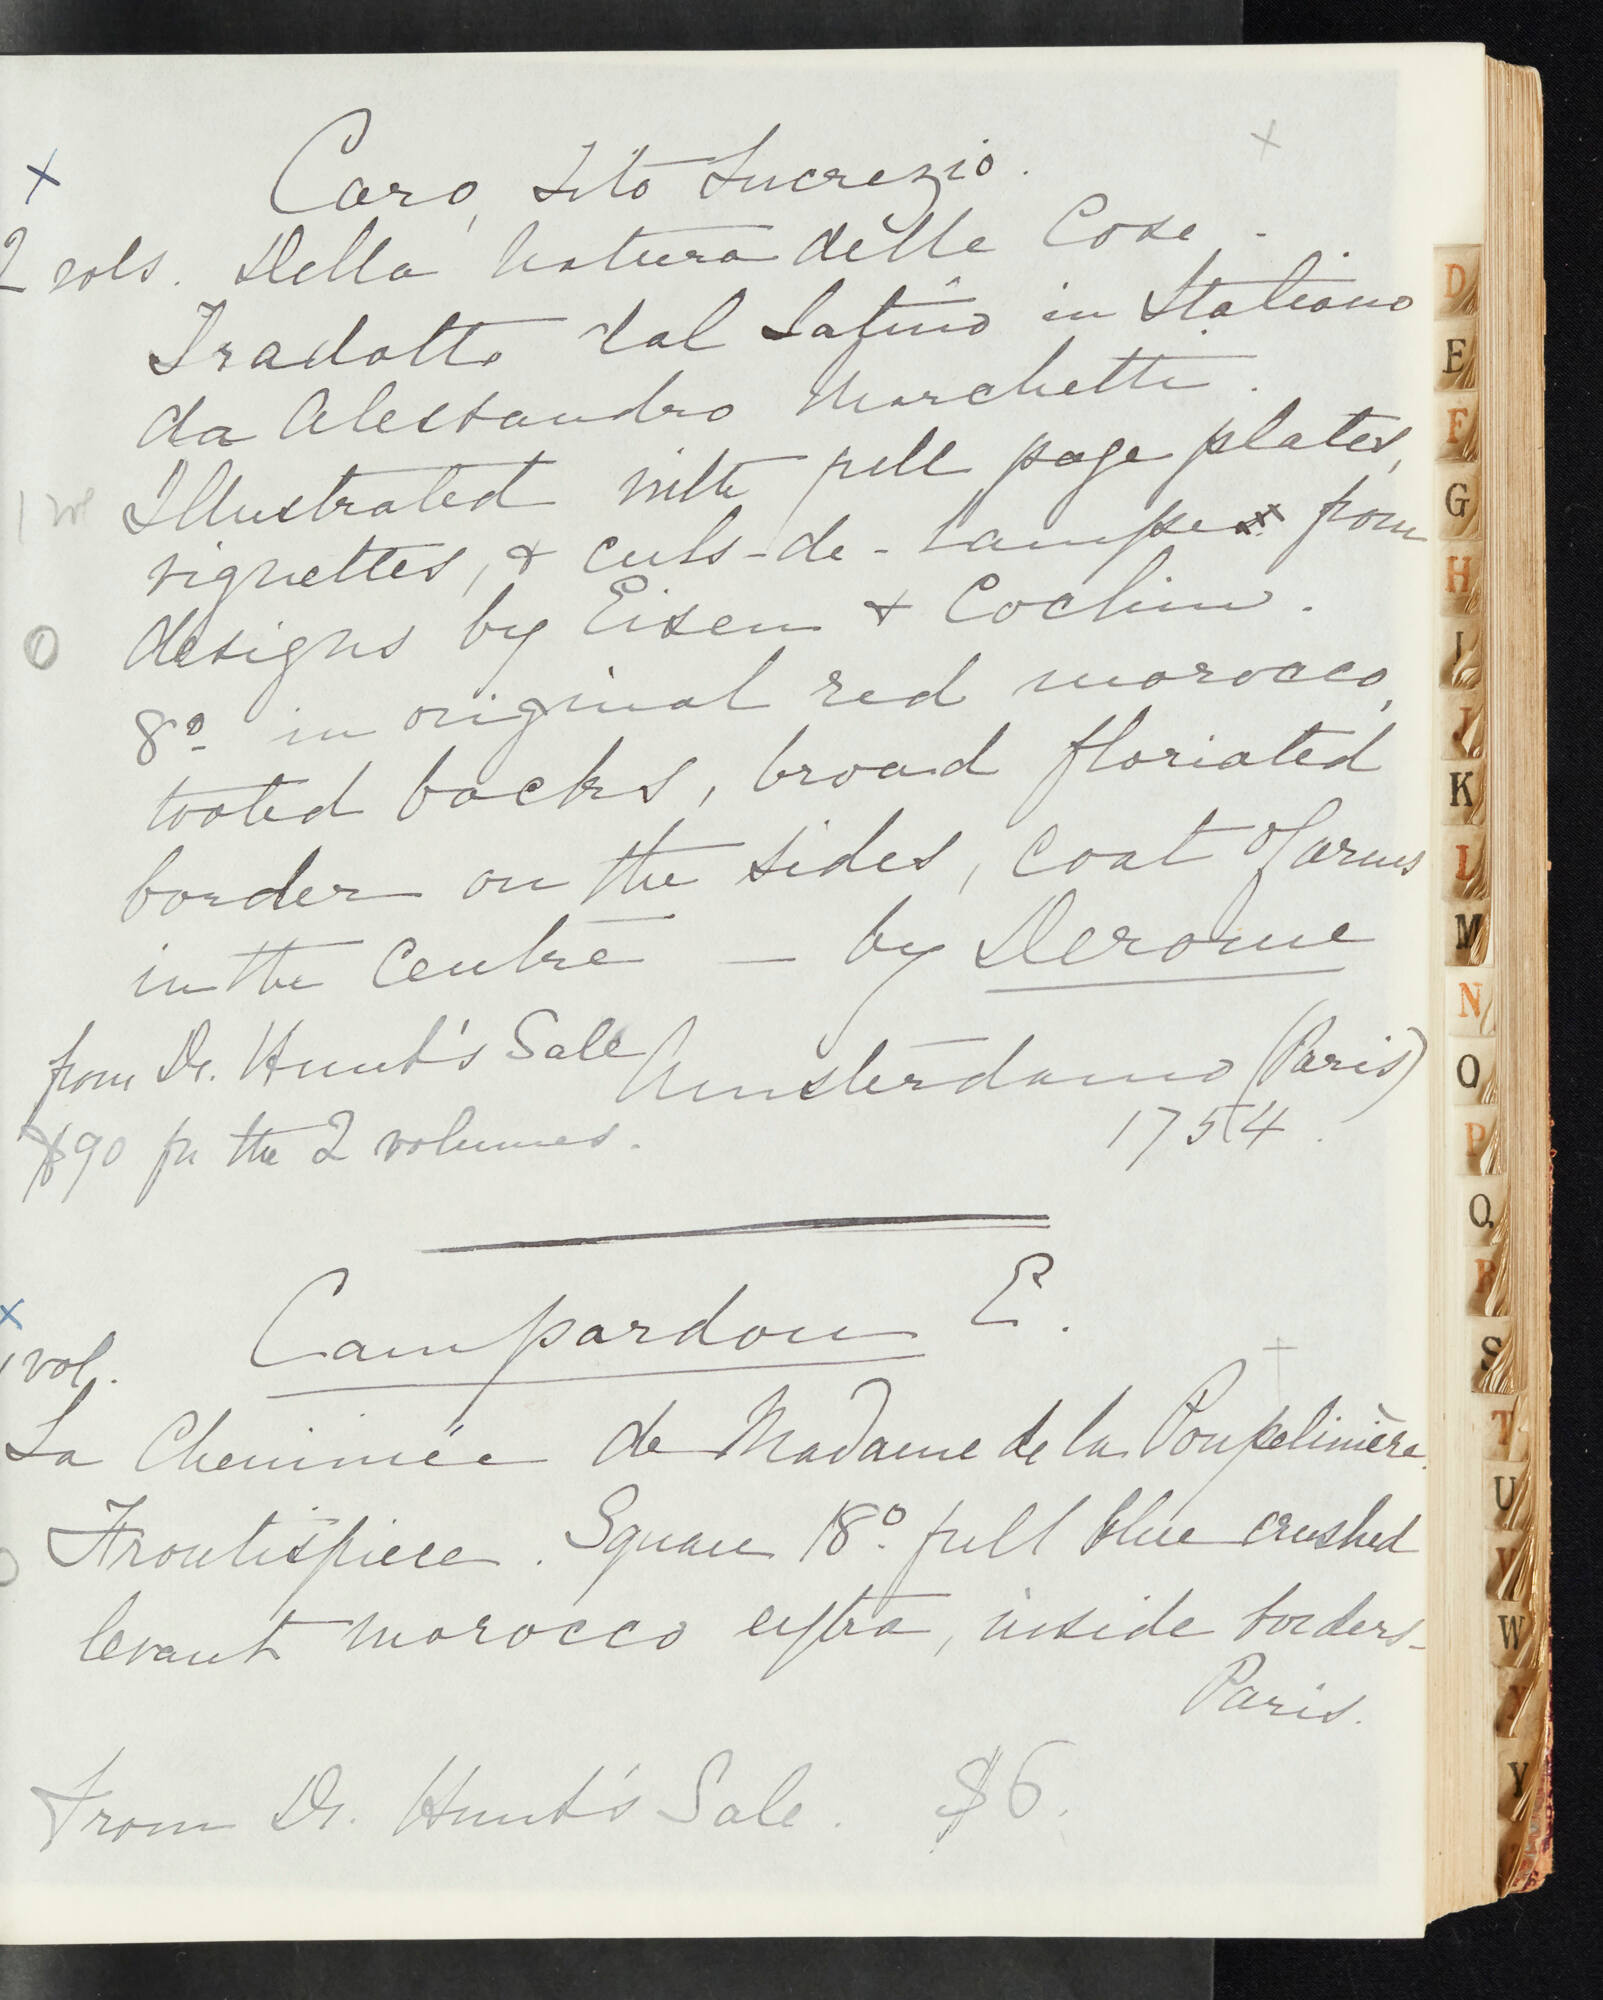 Caro, Tito Lucrezio.
2 vols. Della Natura delle Cose.
Tradotto dal Latino in Italiano
da Alessandro Marchetti.
Illustrated with full page plates,
vignettes, & culs-de-lampe from
designs by Eisen & Cochin.
8o in original red morocco,
tooled backs, broad floriated
border on the sides, coat of arms
in the centre — by Derome
from Dr. Hunt's Sale Amsterdamo (Paris)
$90 for the 2 volumes. 1754.
Campardon E.
1 vol.
La Cheminée de Madame de la Poupelinière.
Frontispiece. Square 18o. full blue crushed
levant morocco extra, inside borders-
Paris.
From Dr. Hunt's Sale. $6.
D
E
F
G
H
I
J
K
L
M
N
O
P
Q
R
S
T
U
V
W
X
Y